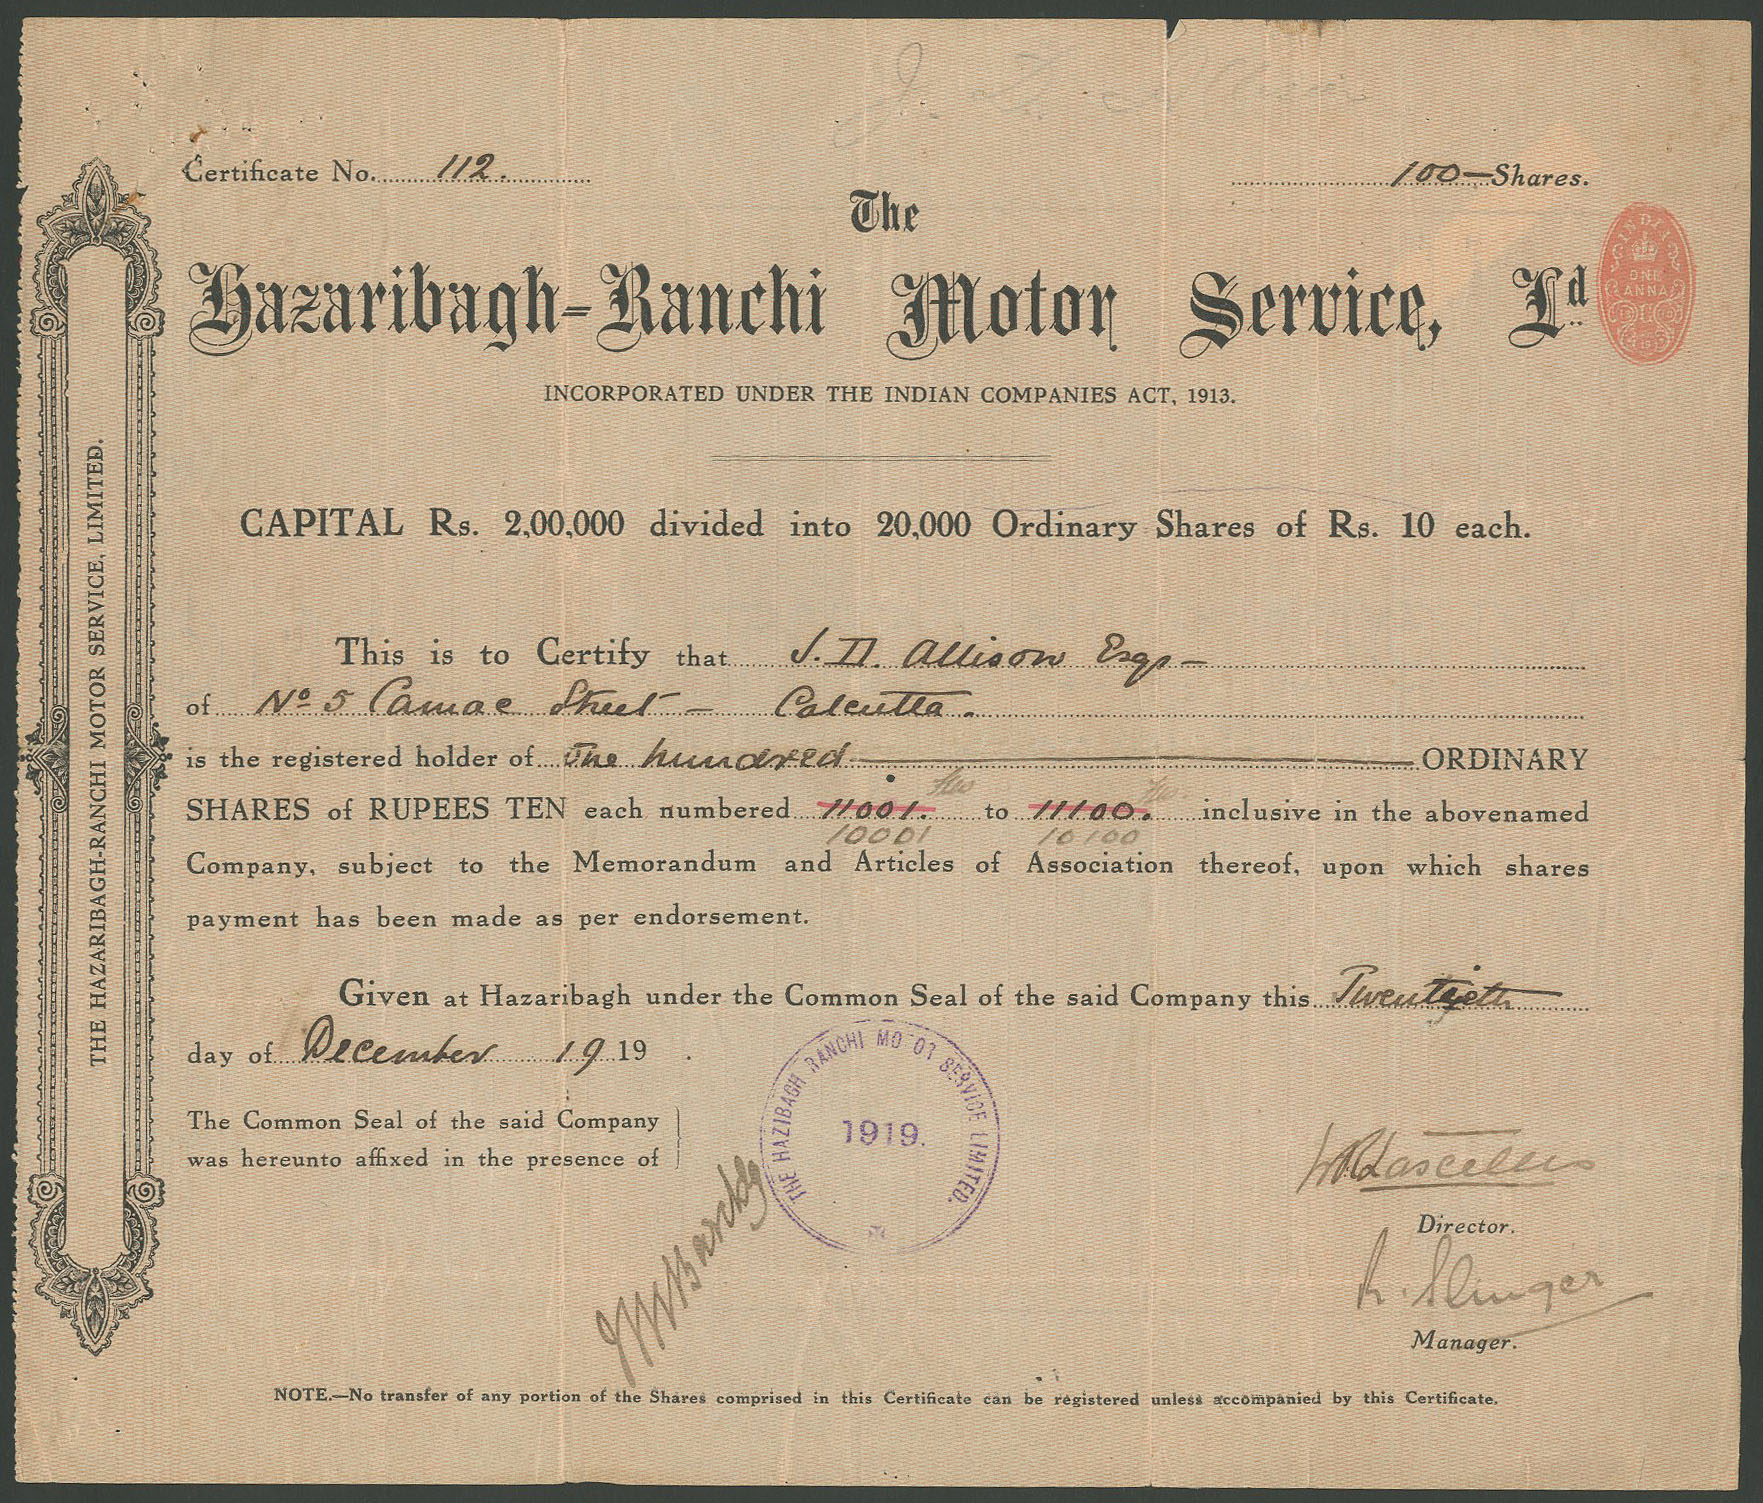 Certificate No. 112.
100 - Shares.
The
Hazaribagh-Ranchi Motor Service, Ld.
INDIA
ONE
ANNA
INCORPORATED UNDER THE INDIAN COMPANIES ACT, 1913.
CAPITAL Rs. 2,00,000 divided into 20,000 Ordinary Shares of Rs. 10 each.
This is to Certify that J. D. Allison Esqr -
of No 5 Camac Street - Calcutta.
is the registered holder of One hundred ORDINARY
SHARES of RUPEES TEN each numbered 11001. to 11100. inclusive in the abovenamed
10001 10100
Company, subject to the Memorandum and Articles of Association thereof, upon which shares
payment has been made as per endorsement.
Given at Hazaribagh under the Common Seal of the said Company this Twentieth
day of December 19 19 .
The Common Seal of the said Company
was hereunto affixed in the presence of
THE HAZIBAGH RANCHI MOTOT SERVICE LIMITED.
1919.
Director.
R. Slinger
Manager.
NOTE.—No transfer of any portion of the Shares comprised in this Certificate can be registered unless accompanied by this Certificate.
THE HAZARIBAGH-RANCHI MOTOR SERVICE, LIMITED.